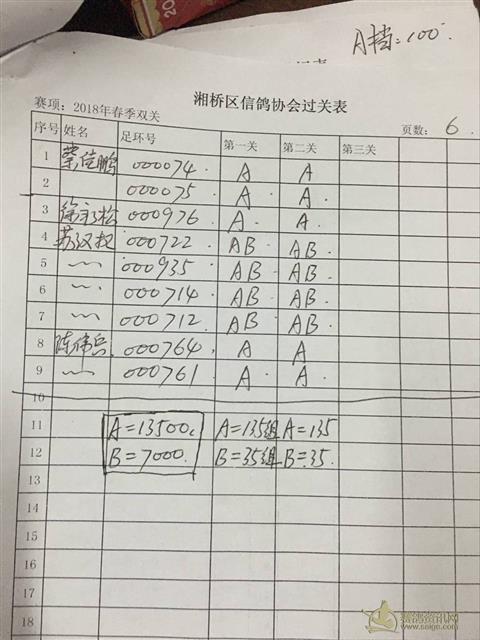 A档=100.
湘桥区信鸽协会过关表
赛项：2018年春季双关
页数： 6 .
序号 姓名 足环号 第一关 第二关 第三关
1 000074. A A
2 000075. A A.
3 000976. A. A.
4 苏汉权 000722. AB AB.
5 〃 000935. AB AB.
6 〃 000714. AB AB.
7 〃 000712. AB AB.
8 陈伟兵 000764. A A
9 〃 000761. A. A.
10
11 A=13500. A=135组 A=135
12 B=7000. B=35组 B=35.
13
14
15
16
17
18
赛鸽资讯网
www.saige.com